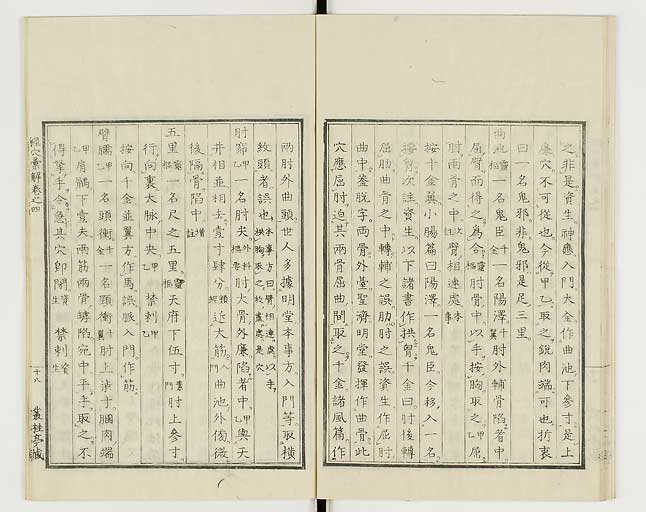 之非是資生神應入門大全作曲池下參寸是上
廉穴不可從也今從甲乙取之銳肉端可也折衷
曰一名鬼邪非鬼邪是足三里
曲池 一名鬼臣 一名陽澤 肘外輔骨陷者中
屈臂而得之 為合 肘骨中以手按胸取之 甲乙 屈
肘兩骨之中 次註 臂相連處 本事
按千金翼小腸篇曰陽澤一名鬼臣今移入一名
次註資生以下諸書作拱胷千金曰肘後轉
屈肋曲骨之中轉輔之誤肋肘之誤資生作屈肘
曲中蓋脫字兩骨外臺聖濟明堂發揮作曲骨此
穴應屈肘迫其兩骨屈曲間取之千金諸風篇作
兩肘外曲頭世人多據明堂本事方入門等取橫
紋頭者誤也 本事方曰臂相連處以手拱胸取之
肘窌 甲乙 一名肘尖 肘大骨外廉陷者中 甲乙 與天
井相並相去壹寸肆分 近大筋 入門 曲池外傍微
後隔骨陷中
五里 靈樞 一名尺之五里 靈樞 天府下伍寸 肘上參寸
行向裏大脈中央 甲乙 禁刺 甲乙
按向千金並翼方作馬誤脈入門作筋
臂臑 甲乙 一名頭衝 千金 一名頸衝 肘上柒寸䐃肉端
甲乙 肩髃下壹夫兩筋兩骨罅陷宛中平手取之不
得拏手令急其穴即閉 資生 禁刺
經穴彙解卷之四
十八
叢桂亭藏